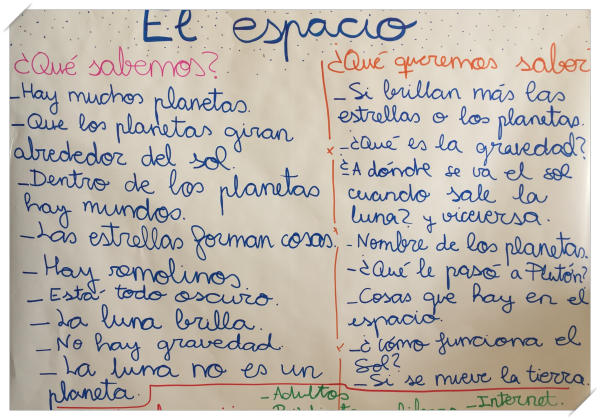 El espacio
¿Qué sabemos?
-Hay muchos planetas.
-Que los planetas giran
alrededor del sol.
-Dentro de los planetas
hay mundos.
-Las estrellas forman cosas.
-Hay remolinos
-Está todo oscuro.
-La luna brilla.
-No hay gravedad.
-La luna no es un
planeta.
¿Qué queremos saber
-Si brillan más las
estrellas o los planetas.
-¿Qué es la gravedad?
¿A dónde se va el sol
cuando sale la
luna? y viceversa.
-Nombre de los planetas.
-¿Qué le pasó a Plutón?
-Cosas que hay en el
espacio.
-¿cómo funciona el
Sol?
-Si se mueve la tierra.
-Adultos
-Internet.